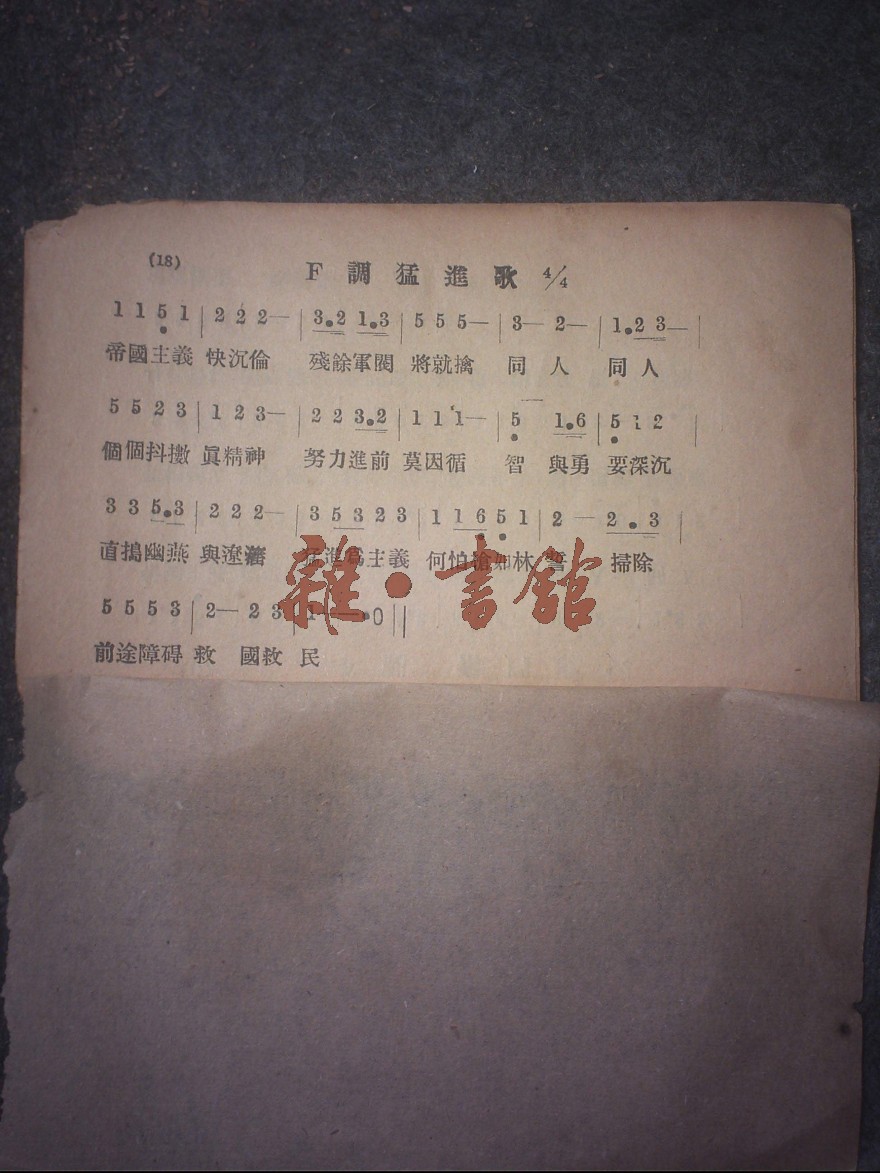 (18)
F 調 猛 進 歌 4/4
1 1 5̣ 1 | 2 2 2— | 3.2 1.3 | 5 5 5— | 3— 2— | 1.2 3— |
帝國主義 快沉倫 殘餘軍閥 將就擒 同 人 同 人
5 5 2 3 | 1 2 3— | 2 2 3.2 | 1 1 1— | 5̣ 1.6 | 5̣ 1 2 |
個個抖擻 眞精神 努力進前 莫因循 智 與勇 要深沉
3 3 5.3 | 2 2 2— | 3 5 3 2 3 | 1 1 6̣ 5̣ 1 | 2 — 2 . 3 |
直搗幽燕 與遼瀋 猛進爲主義 何怕槍如林 誓 掃除
5 5 5 3 | 2— 2 3 | 1 — . 0 ||
前途障碍 救 國救 民
雜·書館